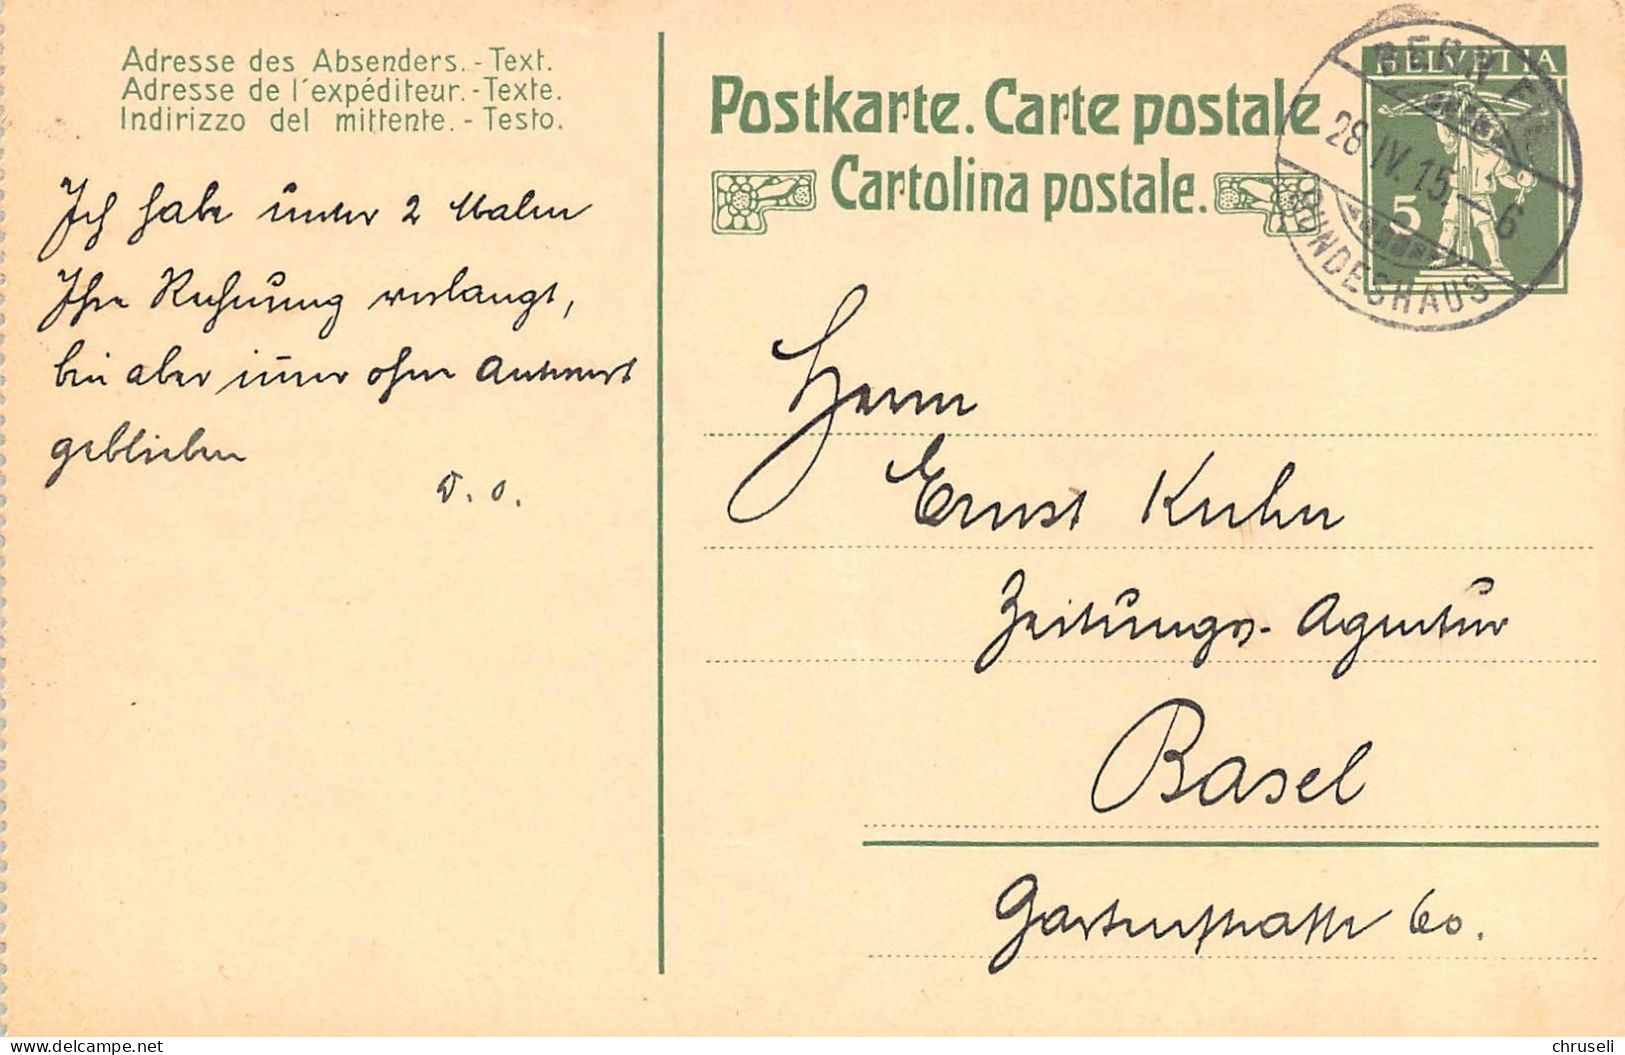 Adresse des Absenders. - Text.
Adresse de l'expéditeur. - Texte.
Indirizzo del mittente. - Testo.
Ich habe unter 2 Malen
Ihre Rechnung verlangt,
bin aber immer ohne Antwort
geblieben
D. O.
Postkarte. Carte postale
Cartolina postale.
HELVETIA
5
BERN
28.IV.15.-6
BUNDESHAUS
Herrn
Ernst Kuhn
Zeitungs-Agentur
Basel
Gartenstrasse 60.
delcampe.net
chruseli